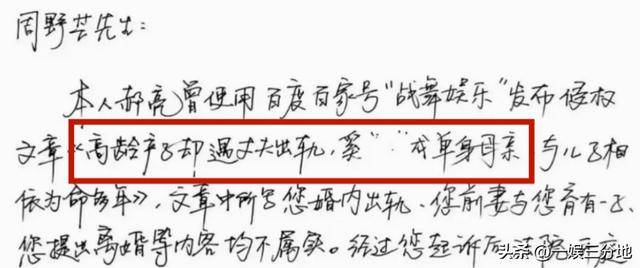 周野芒先生：
本人郝亮曾使用百度百家号“战舞娱乐”发布侵权
文章《高龄产子却遇丈夫出轨，奚” “成单身母亲与儿子相
依为命多年》，文章中所写您婚内出轨、您前妻与您育有一子、
您提出离婚等内容均不属实。经过您起诉后
头条@一娱三分地